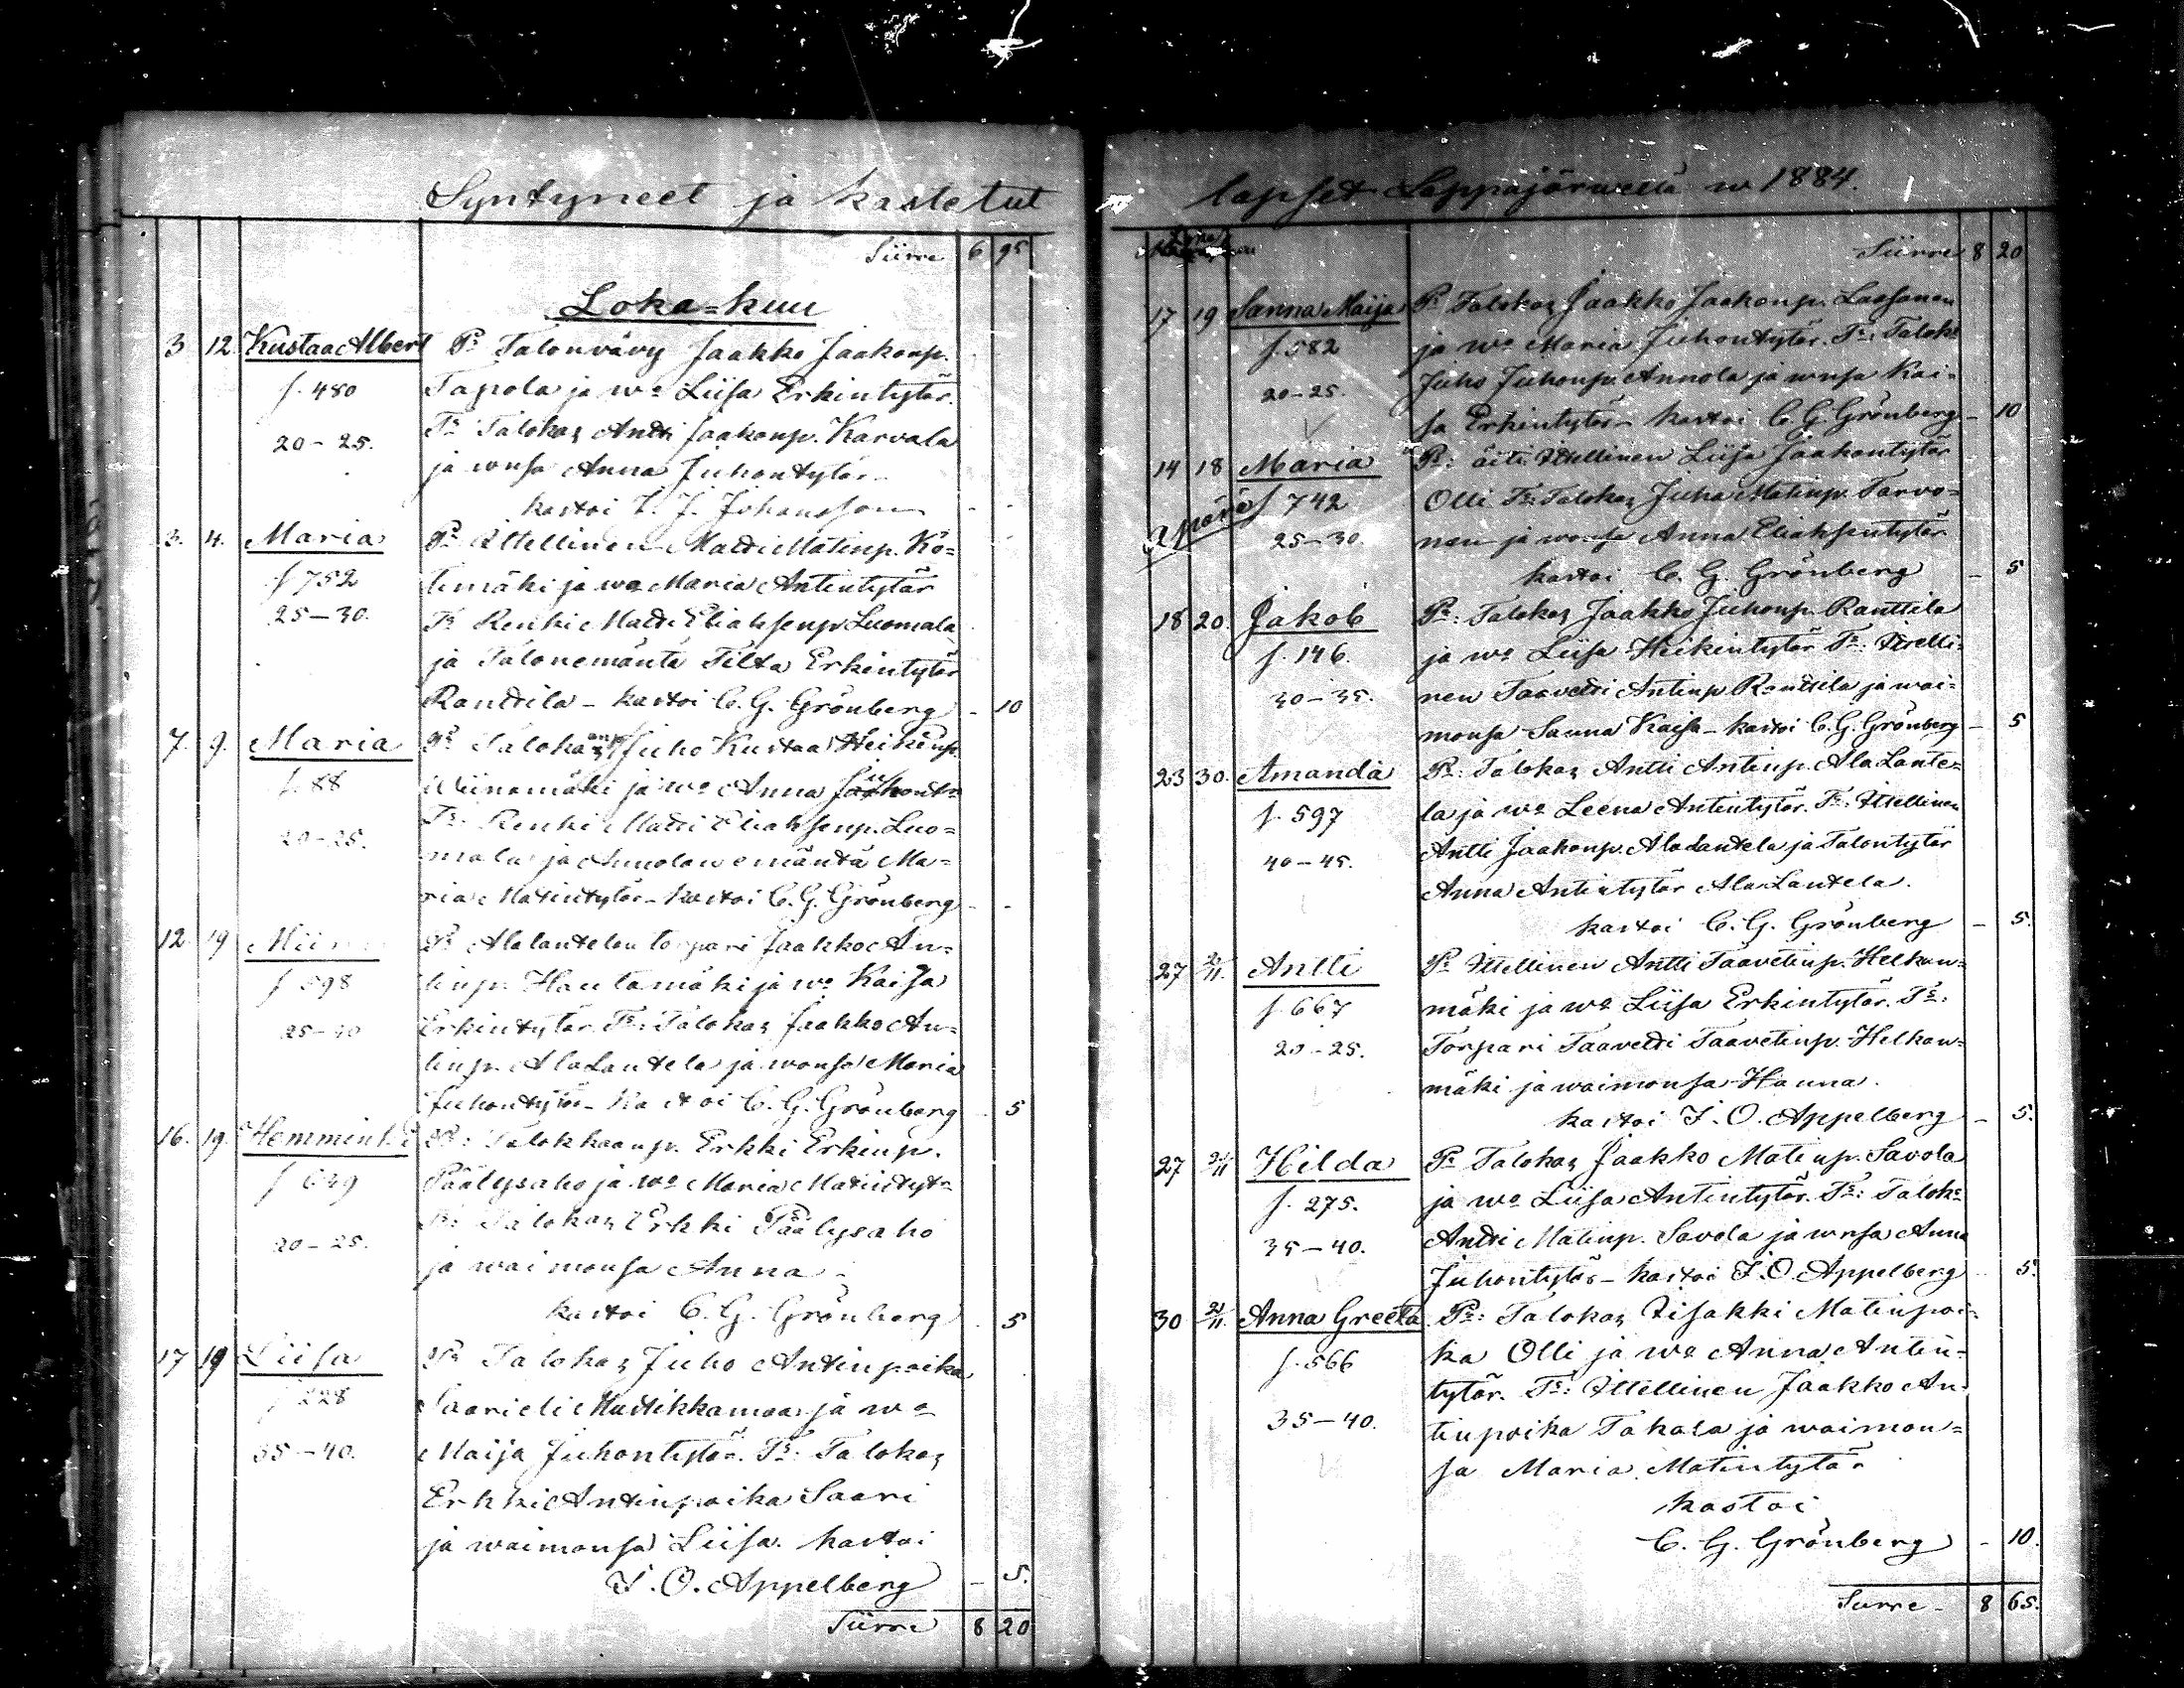 Syntyneet ja kastetut
Siirre 6 95
Loka=kuu
3 12. Kustaa Albert Pr Talonvävy Jaakko Jaakonp.
f. 480 Tapola ja wo Liisa Erkintytär.
20-25. Tr Talokas Antti Jaakonp. Karvala
ja wnsa Anna Juhontytär-
kastoi J. Johansson
3. 4. Maria Pr Ittellinen Matti Matinp. Ko=
f 752 timäki ja wo Maria Antintytär
25-30. Tr Renki Matti Eliaksenp. Luomala
ja Talonemäntä Tilta Erkintytär
Ranttila - kastoi C. G. Grönberg - 10
7. 9. Maria Pr Juho Kustaa Heikinp.
f. 88 Wiinamäki ja wo Anna
20-25. Tr. Renki Matti Eliaksenp. Luo=
mala ja Annolan emäntä Ma=
ria Matintytär - kastoi C. G. Grönberg -
12. 19 Pr Alalantelan torpari Jaakko An=
f 598 tinp. Hautamäki ja wo Kaisa
25-30 Erkintytär Tr: Talokas Jaakko An=
tinp. Ala Lantela ja wonsa Maria
Juhontytär - Kastoi C. G. Grönberg - 5
16. 19. Hemminki Pr: Talokkaanp. Erkki Erkinp.
f 649 Päälysaho ja wo Maria Matintyt=
20-25. Tr: Talokas Erkki Päälysaho
ja waimonsa Anna -
kastoi C. G. Grönberg 5
17 19 Liisa Pr Talokas Juho Antinpoika
f 228 Saari eli Mustikkamaa ja wo
35-40. Maija Juhontytär. Tr. Talokas
Erkki Antinpoika Saari
ja waimonsa Liisa. kastoi
J. O. Appelberg - 5.
Siirre 8 20
lapset Lappajärwellä w 1884.
Siirre 8 20
17 19 Sanna Maija Pr Talokas Jaakko Jaakonp. Laasonen
f. 582 ja wo Maria Juhontytär. Tr: Talok=
20-25. Juho Juhonp. Annola ja wnsa Kai=
sa Erkintytär - kastoi C. G. Grönberg - 10
14 18 Maria Pr: äiti Ittellinen Liisa Jaakontytär
äpärä f 742 Olli Tr. Talokas Juha Matinp. Tarvo=
25-30. nen ja wonsa Anna Eliaksentytär
kastoi C. G. Grönberg - 5
18 20. Jakob Pr: Talokas Jaakko Juhonp. Ranttila
f. 146. ja wo Liisa Heikintytär Tr: Itelli=
30-35. nen Taavetti Antinp. Ranttila ja wai=
monsa Sanna Kaisa - kastoi C. G. Grönberg - 5
23 30. Amanda Pr: Talokas Antti Antinp. Ala Lante=
f. 597 la ja wo Leena Antintytär. Tr: Ittellinen
40-45. Antti Jaakonp. Alalantela ja Talontytär
Anna Antintytär Ala Lantela.
kastoi C. G. Grönberg - 5.
27 2/11. Antti Pr Ittellinen Antti Taavetinp. Helkan=
f. 667 mäki ja wo Liisa Erkintytär. Tr:
20-25. Torpari Taavetti Taavetinp. Helkan=
mäki ja waimonsa Hanna.
kastoi J. O. Appelberg - 5.
27 2/11 Hilda Pr Talokas Jaakko Matinp. Savola
f. 275. ja wo Liisa Antintytär. Tr: Talok=
35-40. Antti Matinp. Savola ja wnsa Anna
Juhontytär - kastoi J. O. Appelberg 5.
30 2/11. Anna Greeta Pr: Talokas Iisakki Matinpoi=
f. 566 ka Olli ja wo Anna Antin=
tytär. Tr: Ittellinen Jaakko An=
35-40. tinpoika Takala ja waimon=
sa Maria Matintytär
kastoi
C. G. Grönberg - 10.
Siirre - 8 65.